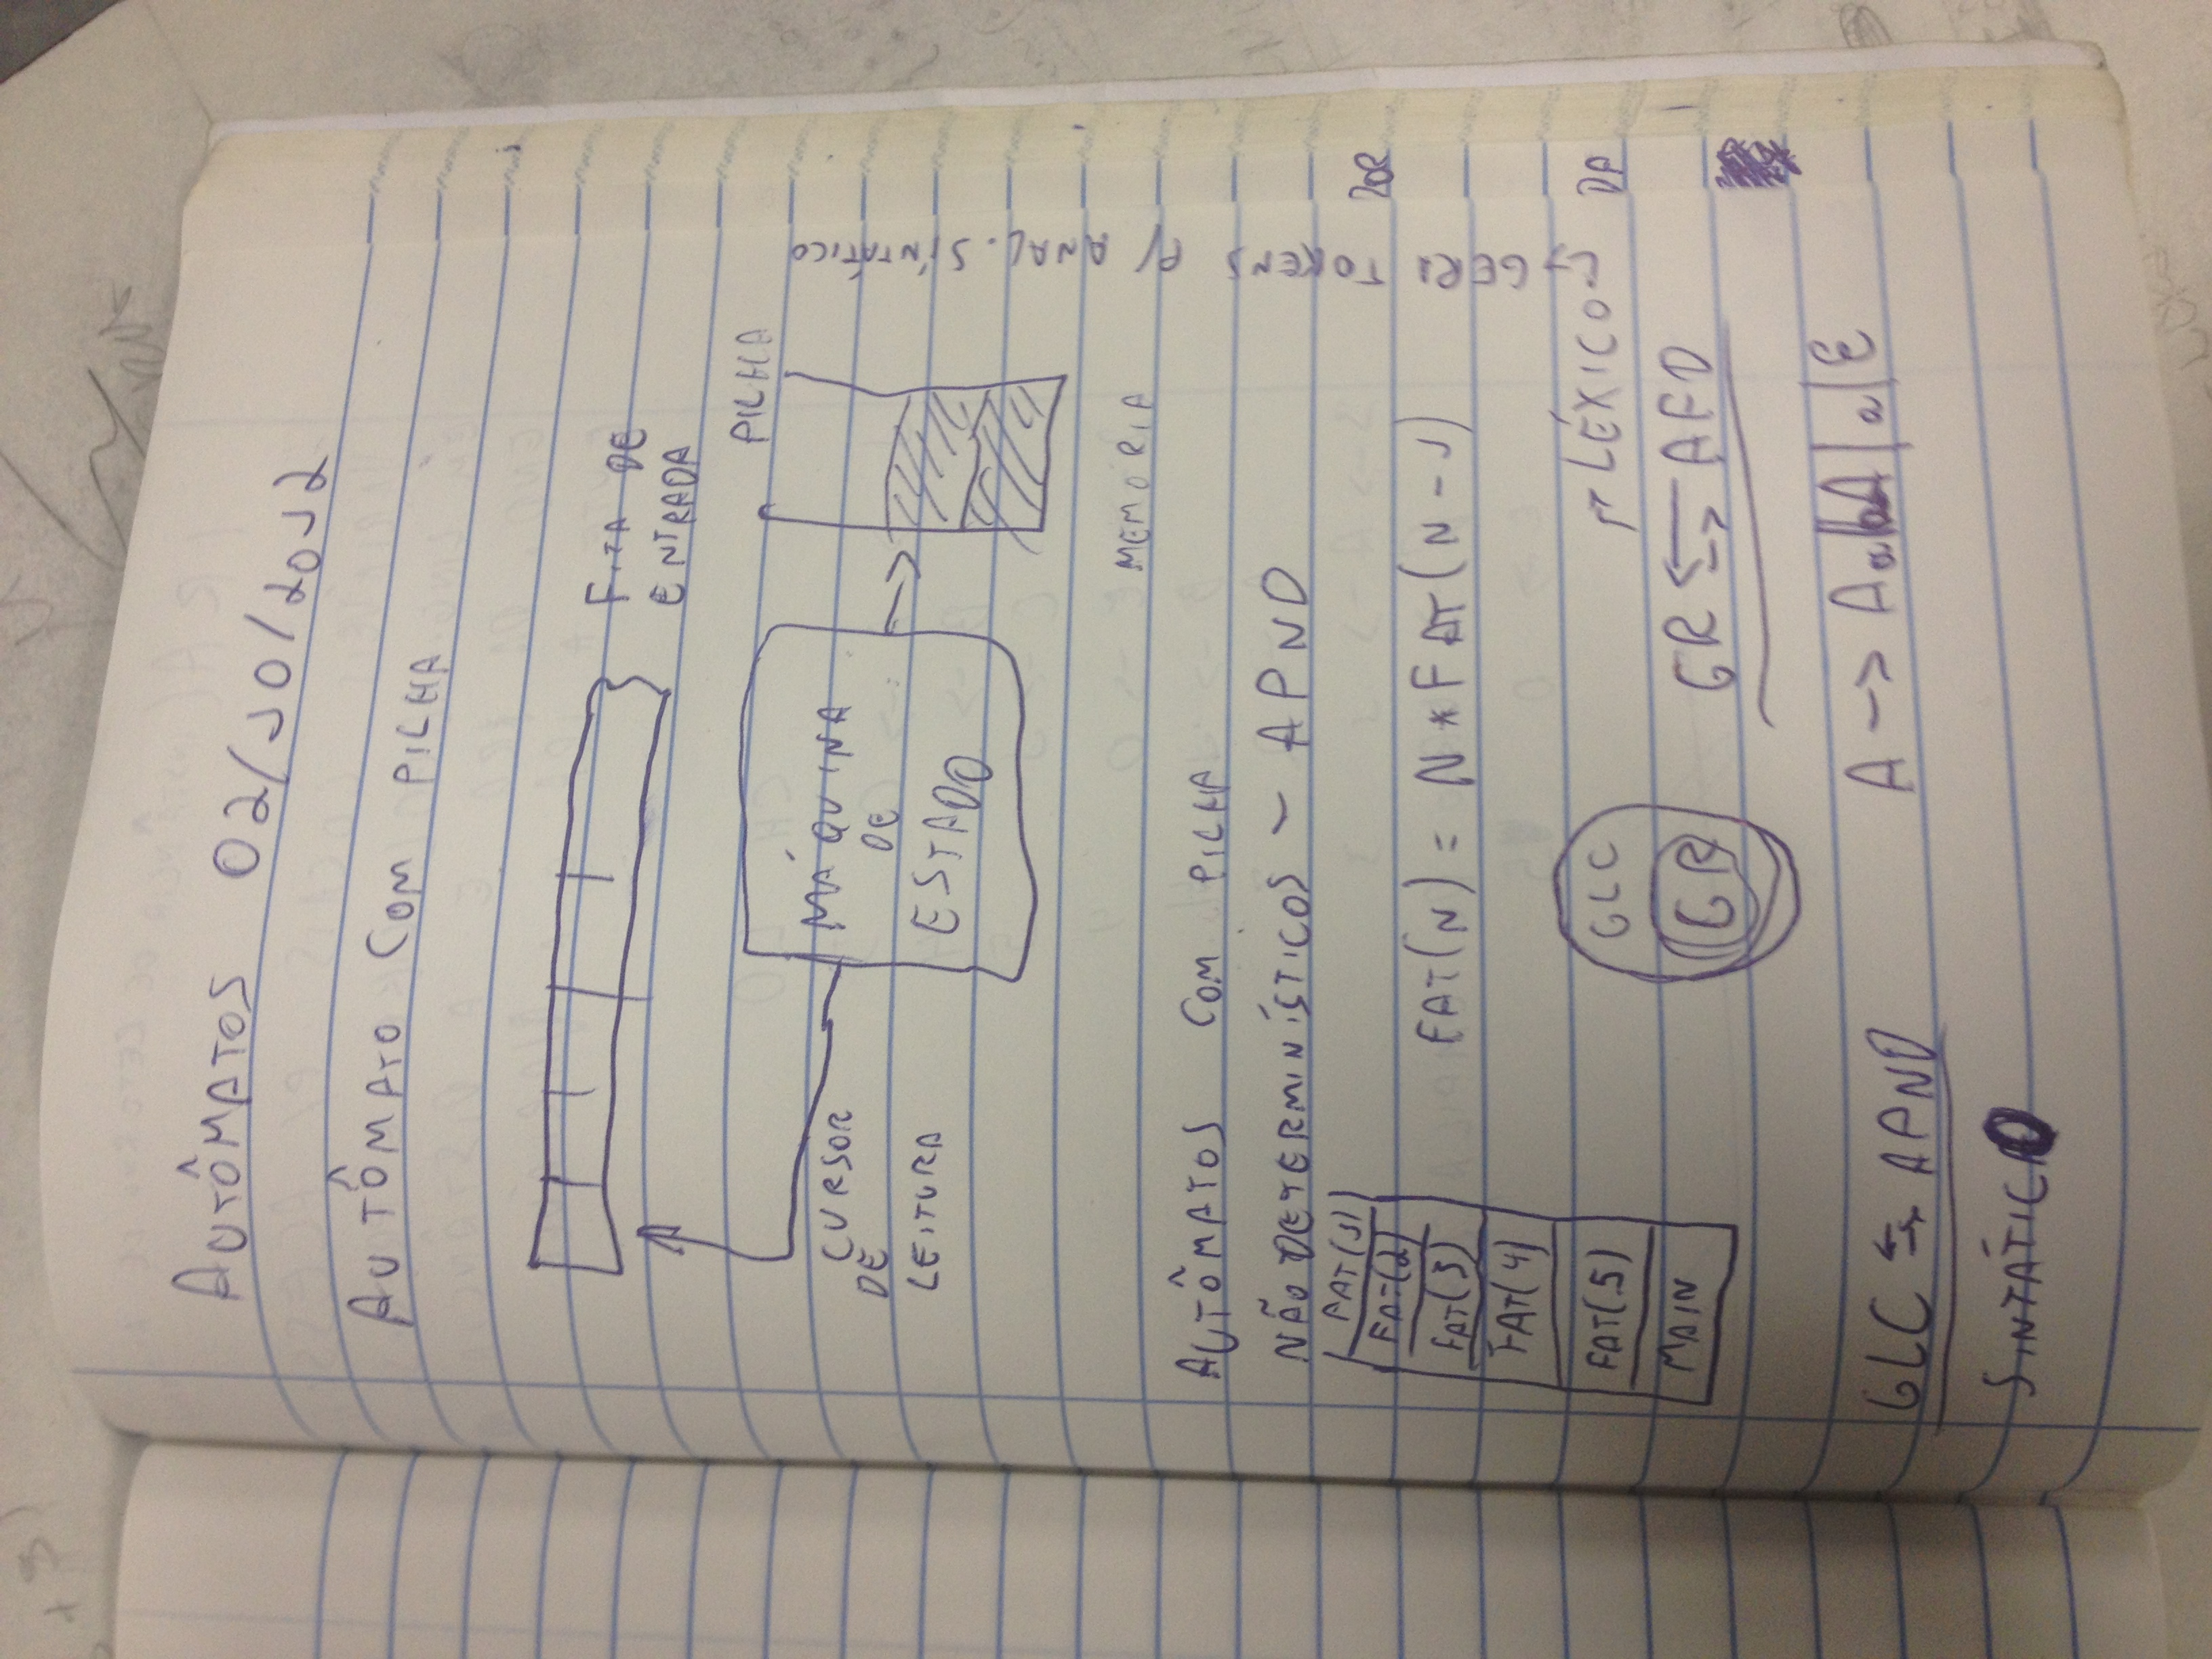 AUTÔMATOS 02/10/2012
AUTÔMATO COM PILHA
FITA DE
ENTRADA
PILHA
CURSOR
DE
LEITURA
MÁQUINA
DE
ESTADO
MEMORIA
AUTÔMATOS COM PILHA
NÃO DETERMINÍSTICOS - APND
FAT(1)
FAT(2)
FAT(3)
FAT(4)
FAT(5)
MAIN
FAT(N) = N * FAT(N - 1)
GLC
GR
↱ LÉXICO
↳ GERA TOKENS P/ ANAL. SINTÁTICO
GR ⇆ AFD
GLC ⇆ APND
A -> Aa|bA|a|E
SINTÁTICO
DA